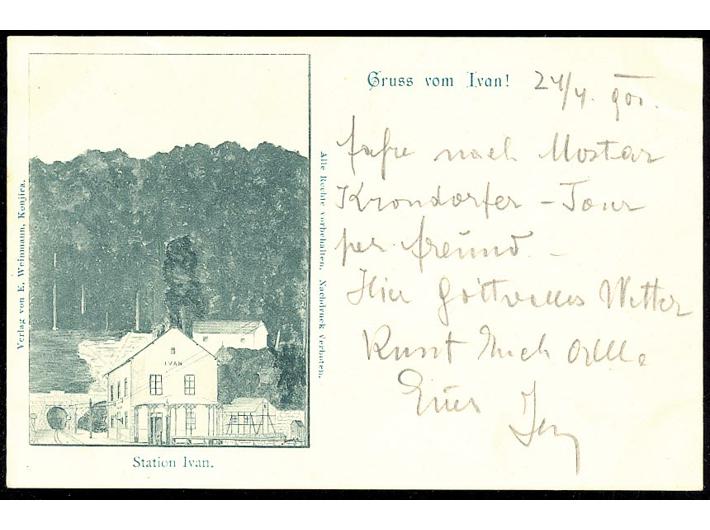 Gruss vom Ivan!
24/4. 900.
fahre nach Mostar
Krondorfer - Tour
per freund. -
Hier Gottvolles Wetter
Küsst Euch Alle
Euer
Verlag von E. Weinmann, Konjica.
Alle Rechte vorbehalten. Nachdruck verboten.
IVAN
Station Ivan.